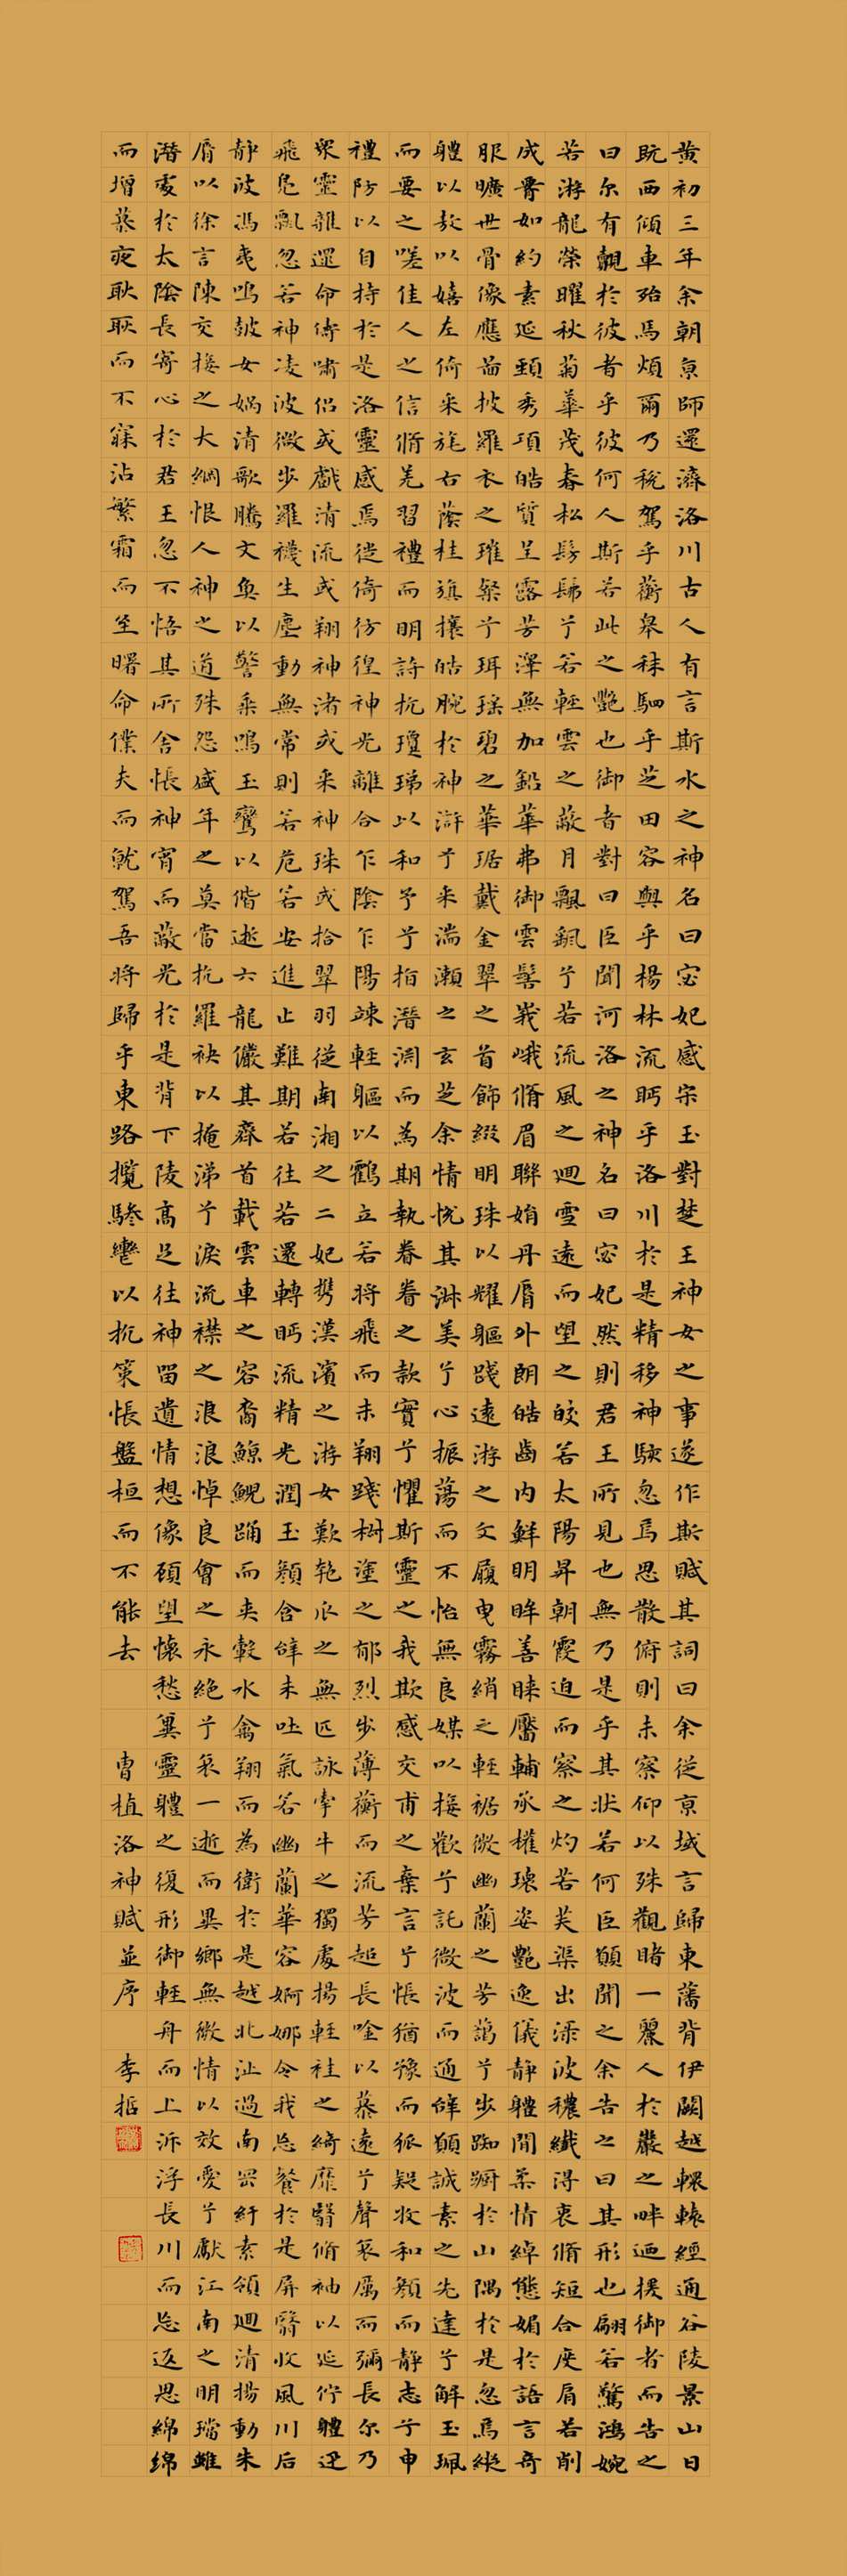 黄初三年余朝京師還濟洛川古人有言斯水之神名曰宓妃感宋玉對楚王神女之事遂作斯賦其詞曰余從京域言歸東藩背伊闕越轘轅經通谷陵景山日
既西傾車殆馬煩爾乃稅駕乎蘅皋秣駟乎芝田容與乎楊林流眄乎洛川於是精移神駭忽焉思散俯則未察仰以殊觀睹一麗人於巖之畔迺援御者而告之
曰尔有覿於彼者乎彼何人斯若此之艷也御者對曰臣聞河洛之神名曰宓妃然則君王所見也無乃是乎其狀若何臣願聞之余告之曰其形也翩若驚鴻婉
若游龍榮曜秋菊華茂春松髣髴兮若輕雲之蔽月飄颻兮若流風之迴雪遠而望之皎若太陽昇朝霞迫而察之灼若芙渠出淥波穠纖得衷脩短合度肩若削
成署如約素延頸秀項皓質呈露芳澤無加鉛華弗御雲髻峩峨脩眉聯娟丹脣外朗皓齒内鮮明眸善睐靨輔承權瓌姿艷逸儀靜軆閒柔情綽態媚於語言奇
服曠世骨像應啚披羅衣之璀粲兮珥瑤碧之華琚戴金翠之首飾綴明珠以耀軀踐遠游之文履曳霧綃之輕裾微幽蘭之芳藹兮步踟蹰於山隅於是忽焉縱
軆以敖以嬉左倚采旄右蔭桂旗攘皓腕於神滸兮采湍瀨之玄芝余情悅其淑美兮心振蕩而不怡無良媒以接歡兮託微波而通辭願誠素之先達兮解玉珮
而要之嗟佳人之信脩羌習禮而明詩抗瓊珶以和予兮指潛淵而為期執眷眷之款實兮懼斯靈之我欺感交甫之棄言兮悵猶豫而狐疑收和顏而靜志兮申
禮防以自持於是洛靈感焉徙倚彷徨神光離合乍陰乍陽竦輕軀以鶴立若將飛而未翔踐椒塗之郁烈步薄蘅而流芳超長唫以慕遠兮聲哀厲而彌長尔乃
衆靈雜遝命儔嘯侶或戲清流或翔神渚或采神珠或拾翠羽從南湘之二妃携漢濱之游女歎匏瓜之無匹詠牽牛之獨處揚輕袿之綺靡翳脩袖以延佇軆迅
飛鳧飄忽若神凌波微步羅襪生塵動無常則若危若安進止難期若往若還轉眄流精光潤玉顏含辭未吐氣若幽蘭華容婀娜令我忘餐於是屏翳收風川后
靜波馮夷鳴鼓女媧清歌騰文魚以警乘鳴玉鸞以偕逝六龍儼其齊首載雲車之容裔鯨鯢踊而夾轂水禽翔而為衛於是越北沚過南岡紆素領迴清揚動朱
脣以徐言陳交接之大綱恨人神之道殊怨盛年之莫當抗羅袂以掩涕兮淚流襟之浪浪悼良會之永絕兮哀一逝而異鄉無微情以效愛兮獻江南之明璫雖
潛處於太陰長寄心於君王忽不悟其所舍悵神宵而蔽光於是背下陵高足往神留遺情想像顧望懷愁冀靈軆之復形御輕舟而上泝浮長川而忘返思綿綿
而增慕夜耿耿而不寐沾繁霜而至曙命僕夫而就駕吾將歸乎東路攬騑轡以抗策悵盤桓而不能去 曹植洛神賦並序 李抵